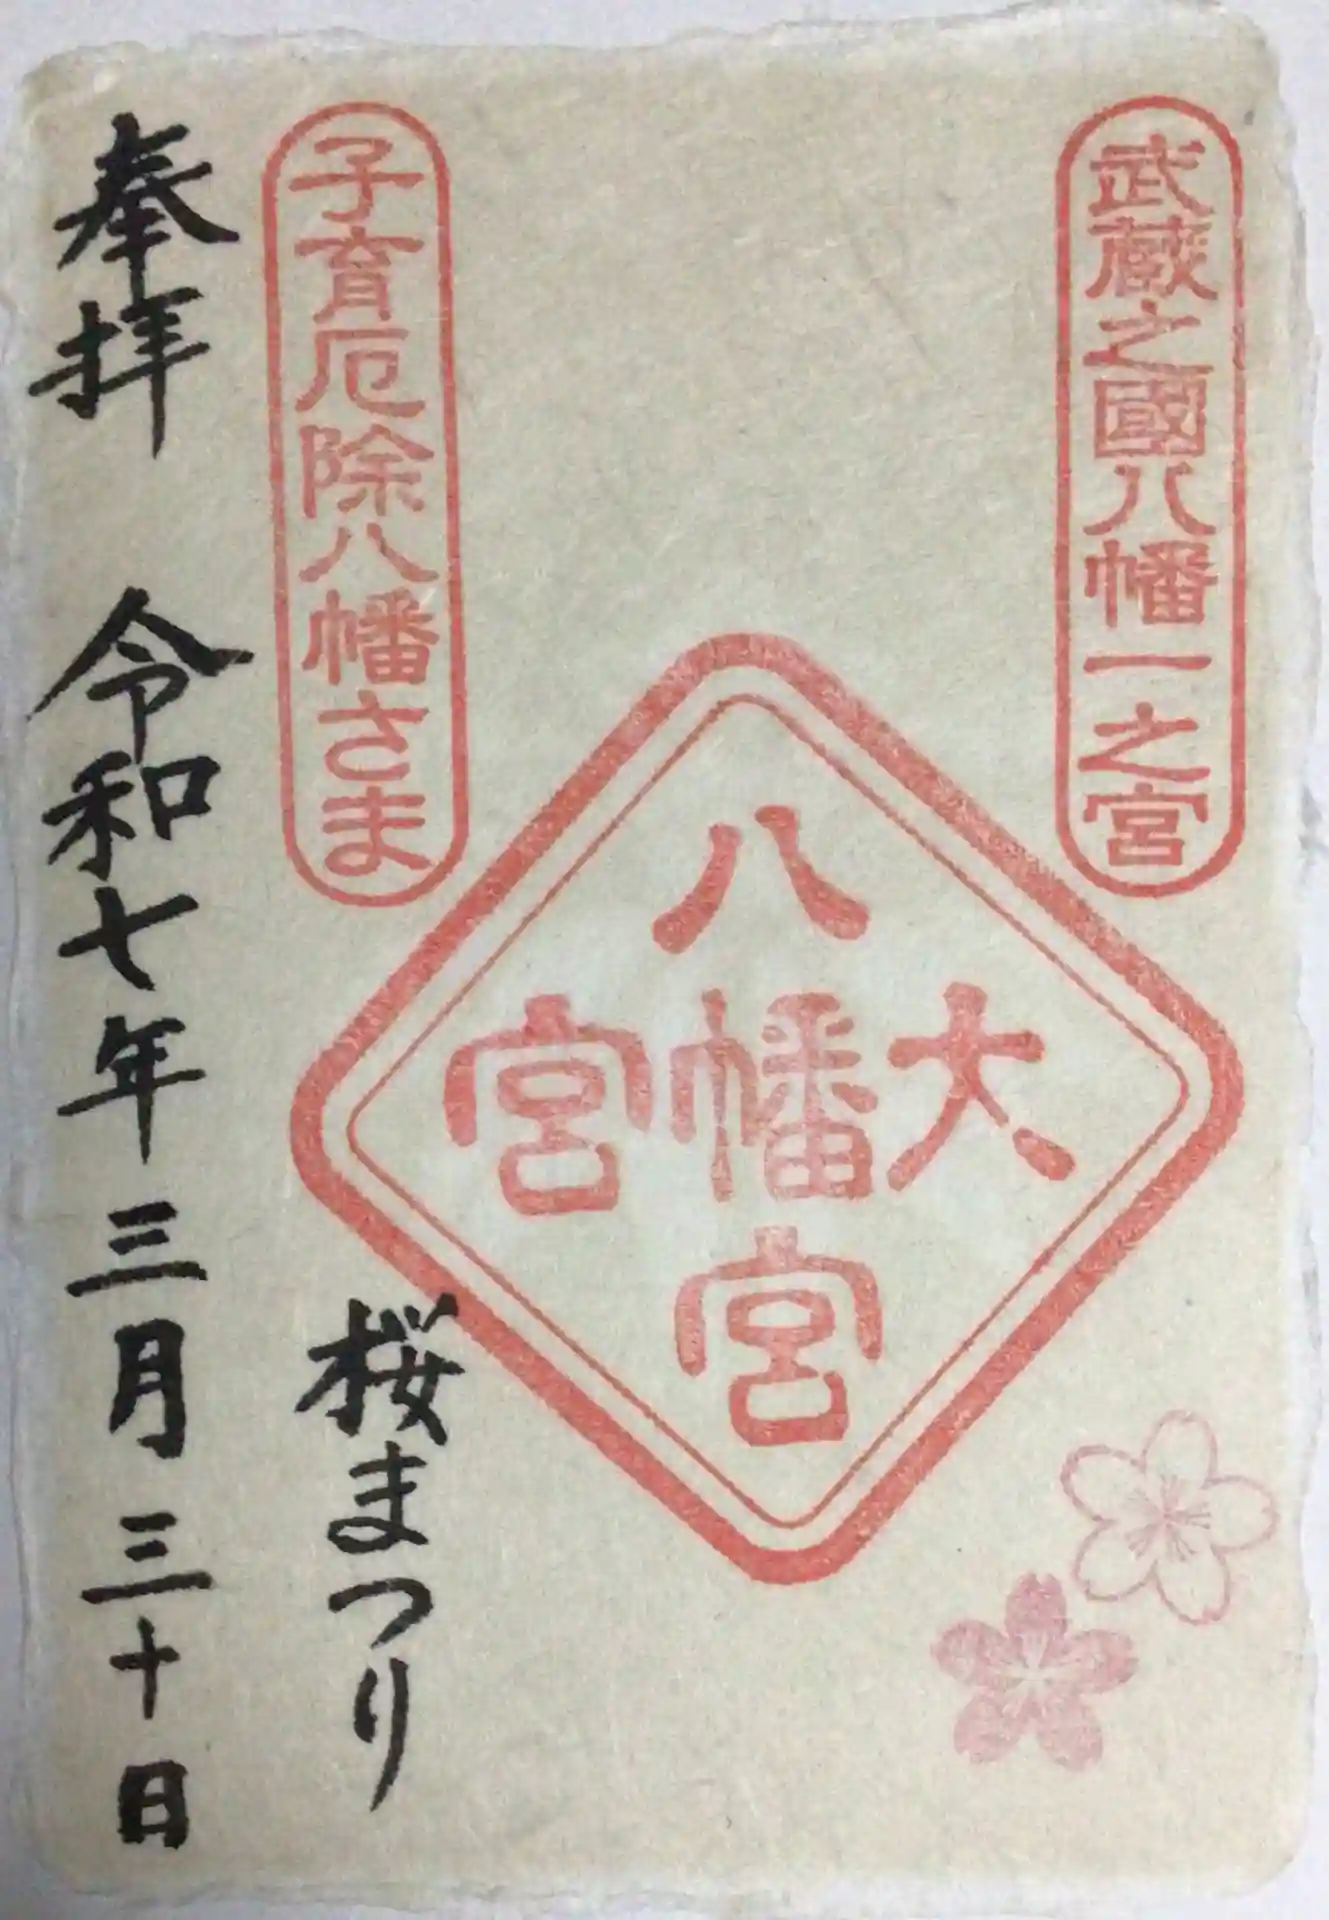 武蔵之國八幡一之宮
大
八幡宮
宮
子育厄除八幡さま
桜まつり
奉拝 令和七年三月三十日